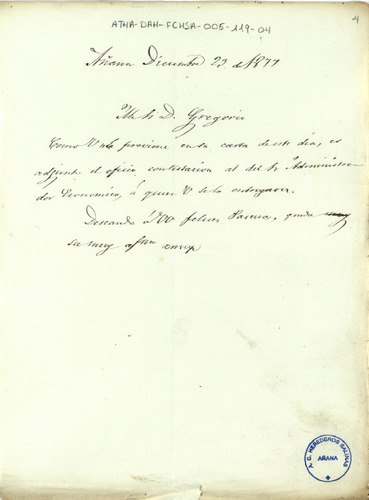 ATHA-DAH-FCHSA-005-119-04
4
Añana Diciembre 23 de 1877
D. Gregorio
Como V. me previene en la carta de este día, es
adjunto el oficio contestacion al del Sr Administra
dor Economico, á quien V se lo entregara.
Deseando felices Pascuas, queda
su muy affmo
A.C. HEREDEROS SALINAS
AÑANA